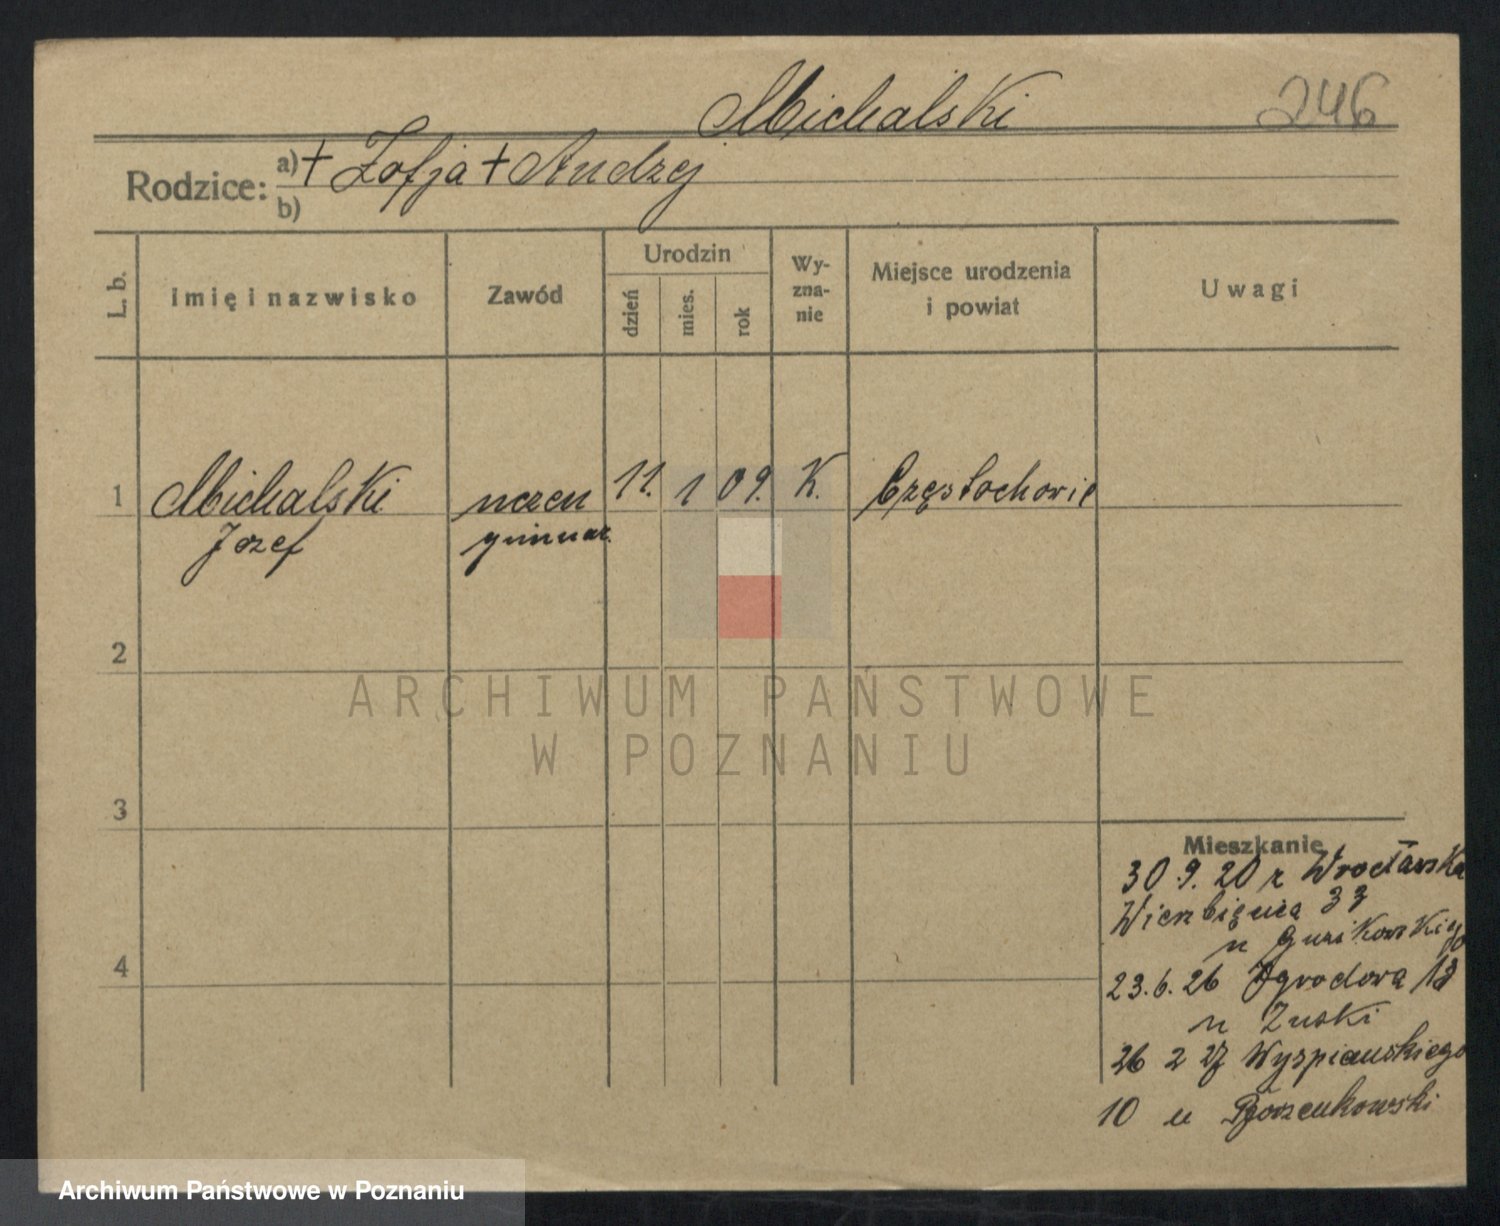 Michalski
246
Rodzice: a) + Zofja + Andrzej
b)
L. b.
Imię i nazwisko
Zawód
Urodzin
dzień
mies.
rok
Wy-
zna-
nie
Miejsce urodzenia
i powiat
Uwagi
1 Michalski uczeń 11. 1 09. K. Częstochowie
Józef gimnaz.
2
ARCHIWUM PAŃSTWOWE
W POZNANIU
3
4
Mieszkanie
30.9.20 z Wrocławska
Wierzbięcia 33
u
23.6.26 Ogrodowa 13
u Zuski
26 2 27 Wyspiańskiego
10 u
Archiwum Państwowe w Poznaniu